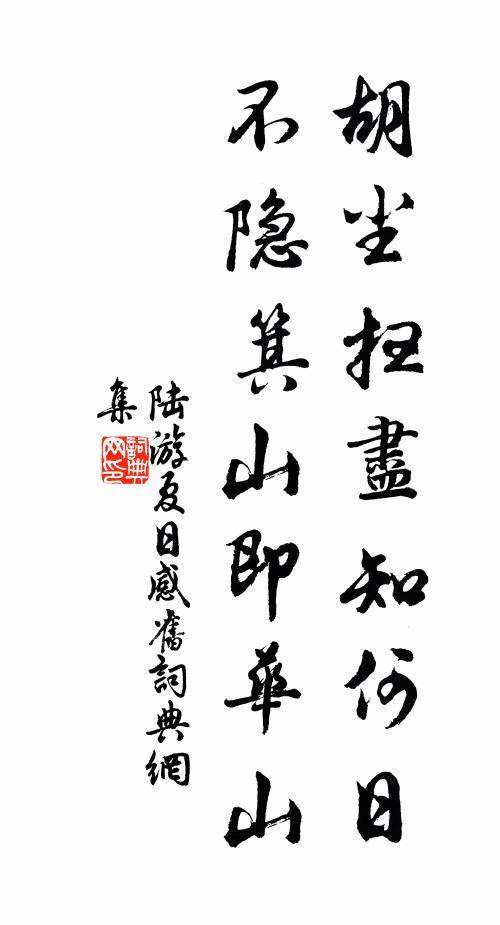 胡尘扫盡知何日
不隐箕山即華山
陆游夏日感舊詞典網
集
詞典